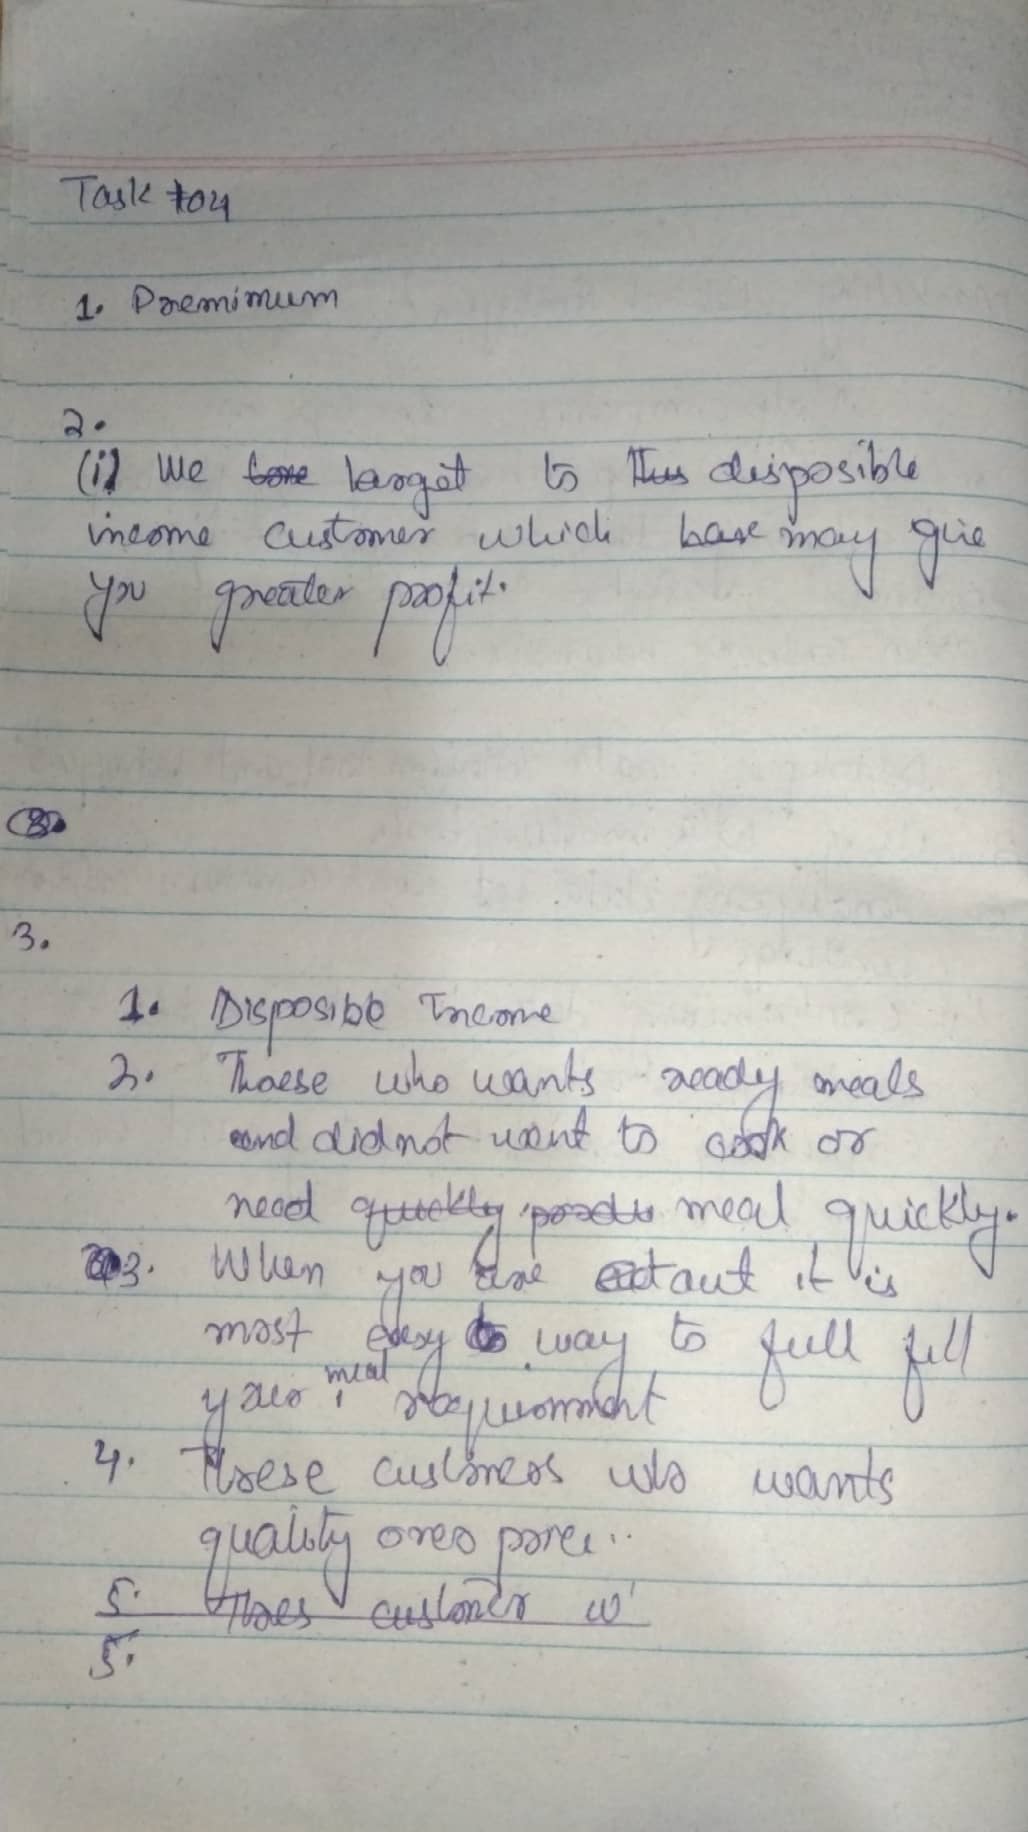 Task #04
1. Premimum
2.
(i) We target to disposible
income customer which may give
you greater profit.
3.
1. Disposible Income
2. Thoese who wants ready meals
and didnot want to cook or
need quickly meal quickly.
3. When you are out it is
most easy way to full fill
your meal requirommint
4. Thoese customers who wants
quality over price..
5. Thoes customer w
5.